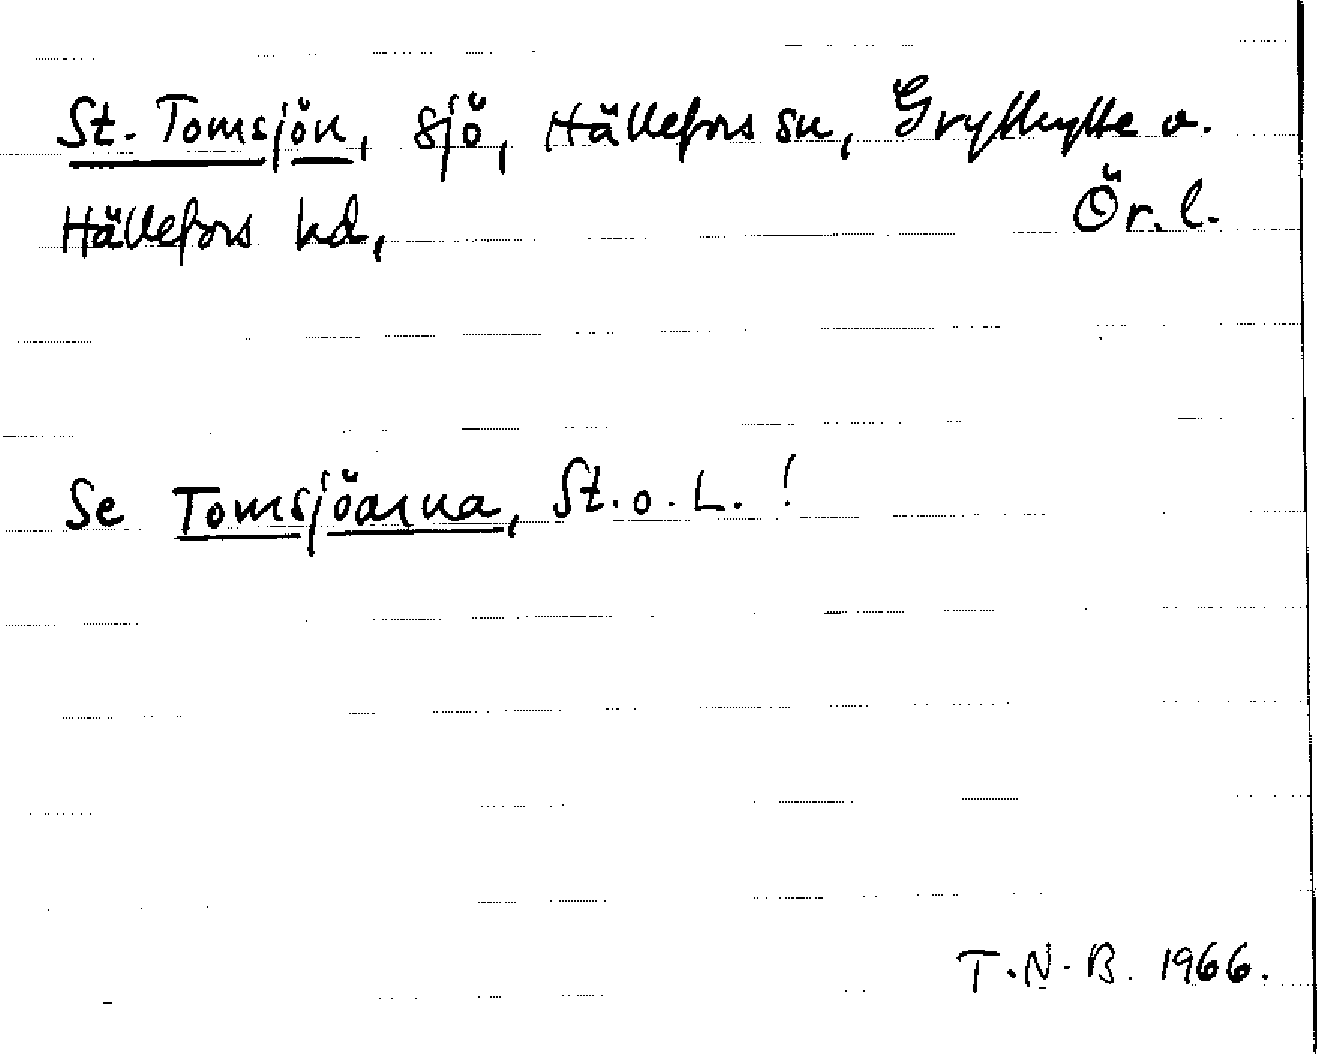 St. Tomsjön, sjö, Hällefors sn, Grythytte o.
Hällefors hd, Ör. l.
Se Tomsjöarna, St. o. L. !
T.N.B. 1966.